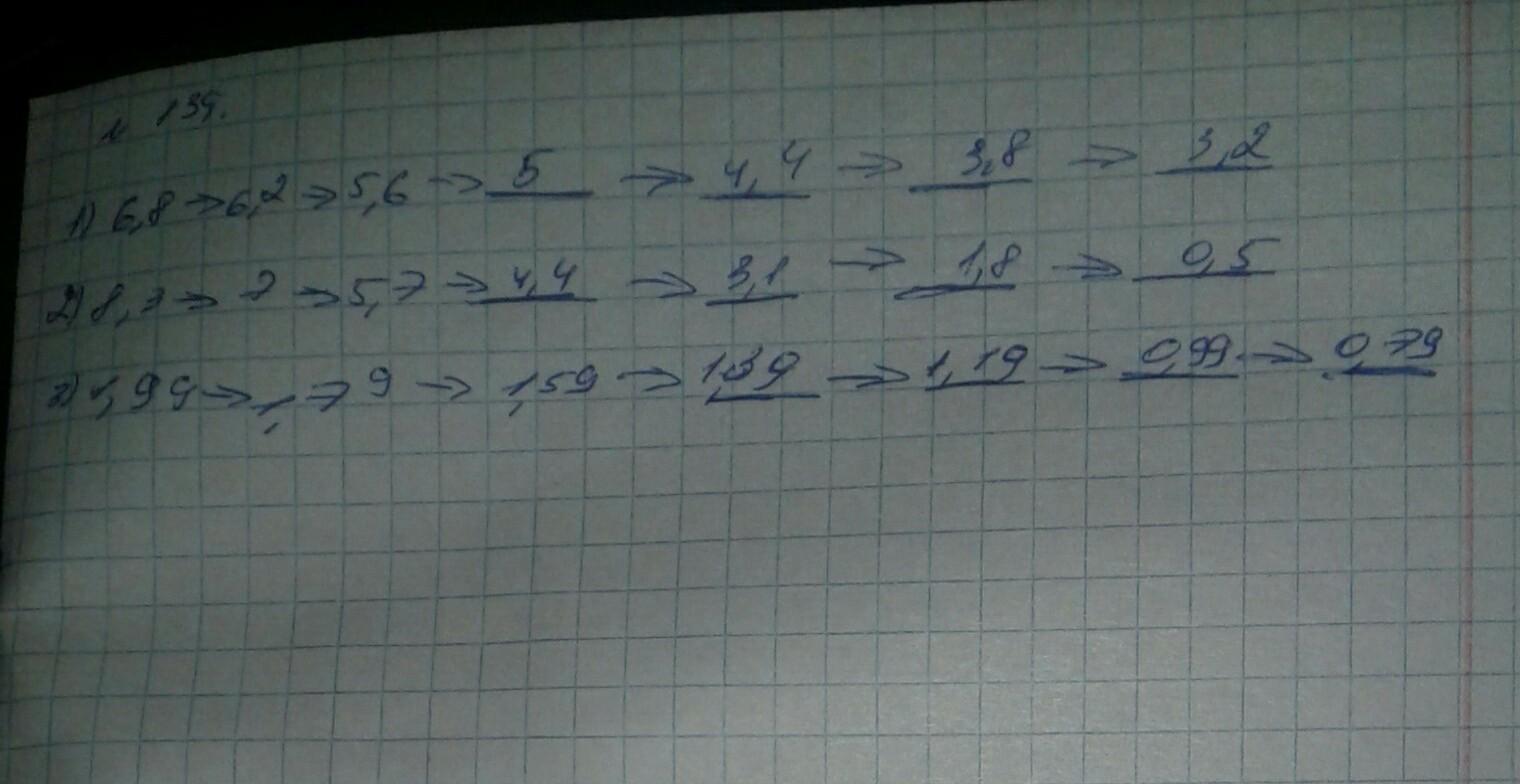 № 139.
1) 6,8 → 6,2 → 5,6 → 5 → 4,4 → 3,8 → 3,2
2) 8,3 → 7 → 5,7 → 4,4 → 3,1 → 1,8 → 0,5
3) 1,99 → 1,79 → 1,59 → 1,39 → 1,19 → 0,99 → 0,79